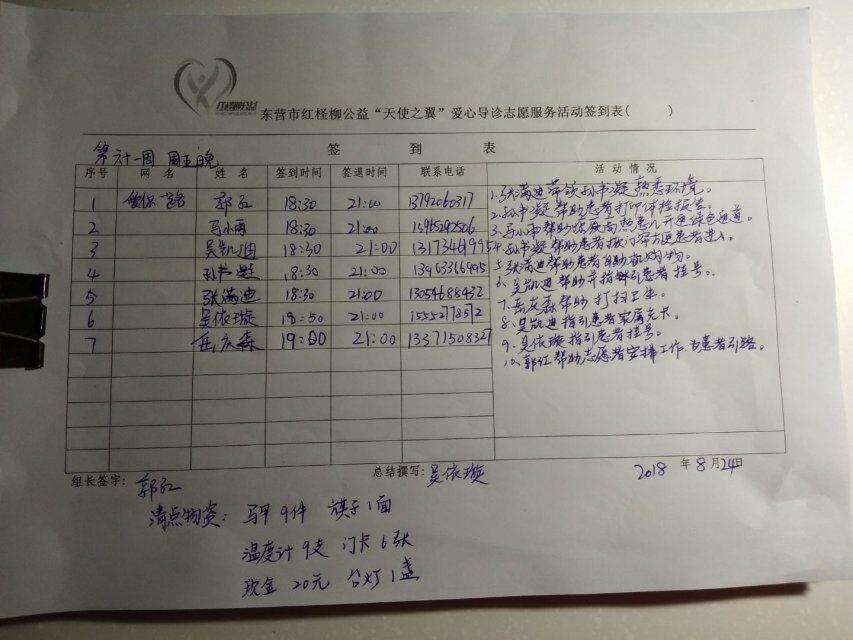 东营市红柽柳公益“天使之翼”爱心导诊志愿服务活动签到表( )
签 到 表
周五晚
序号 网 名 姓 名 签到时间 签退时间 联系电话 活 动 情 况
1 郭红 18:30 21:00 13792060317
2 马小雨 18:30 21:00
3 吴凯迪 18:30 21:00
4 18:30 21:00
5 张满迪 18:30 21:00 13054688432
6 吴依璇 18:50 21:00 15552778572
7 岳庆森 19:00 21:00 13371508327
1.张满迪带领孙书凝熟悉环境。
2.孙书凝帮助患者打印体检报告。
3.马小雨帮助 高热患儿开通绿色通道。
4.孙书凝帮助患者
5.张满迪帮助患者自助机
6.吴凯迪帮助并指引患者挂号。
7.岳庆森帮助打扫卫生。
8.吴凯迪指引患者家属充卡。
9.吴依璇指引患者挂号。
10.郭红帮助志愿者安排工作,为患者引路。
组长签字: 郭红 总结撰写: 吴依璇 2018 年 8 月 24 日
清点物资: 马甲 9件 旗子 1面
温度计 9支 门卡 6张
现金 20元 台灯 1盏